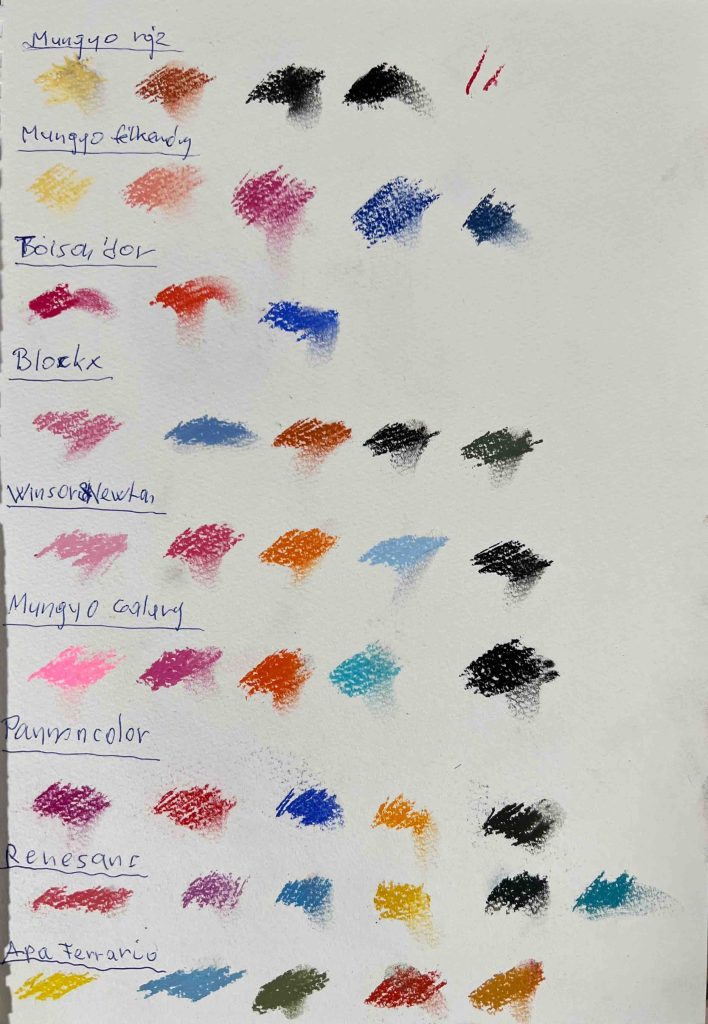 Mungyo
Mungyo félkemény
Boisan'dor
Blockx
Winsor&Newton
Mungyo Gallery
Pannoncolor
Renesans
Apa Ferrario